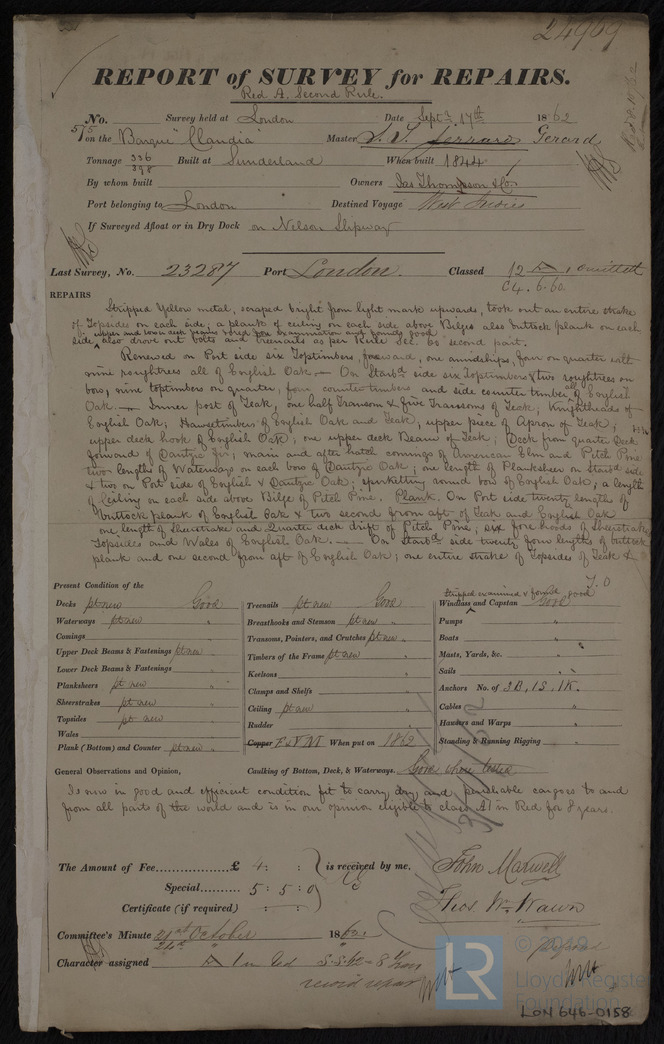 24969
REPORT of SURVEY for REPAIRS.
Red A. Second Rule.
No. Survey held at London Date Sept. 17th 1862
on the Barque "Claudia" Master Gerard
Tonnage 336 Built at Sunderland When built 1844
By whom built Owners Jas Thompson & Co.
Port belonging to London Destined Voyage West Indies
If Surveyed Afloat or in Dry Dock on Nelson Slipway
Last Survey, No. 23287 Port London. Classed 12 A omitted
C4. 6. 60
REPAIRS
Stripped Yellow metal, scraped bright from light mark upwards, took out an entire strake
of Topsides on each side; a plank of ceiling on each side above Bilges also buttock plank on each
upper and lower deck for examination and found good
side, also drove out bolts and treenails as per Rule Sec. 62 second part.
Renewed on Port side six Toptimbers, forward, one amidships, four on quarter
nine roughtrees all of English Oak. On Starbd side six Toptimbers & two roughtrees on
bow, nine toptimbers on quarter, four counter timbers and side counter timber, all of English
Oak. Inner post of Teak, one half Transom & five Transoms of Teak; Knightheads of
English Oak; Hawsetimbers of English Oak and Teak, upper piece of Apron of Teak;
upper deck hook of English Oak; one upper deck Beam of Teak; Deck from quarter Deck
forward of Dantzic Fir; main and after hatch comings of American Elm and Pitch Pine
two lengths of Waterways on each bow of Dantzic Oak; one length of Planksheer on Starbd side
& two on Port side of English & Dantzic Oak; spirketting round bow of English Oak; a length
of Ceiling on each side above Bilge of Pitch Pine. Plank. On Port side twenty lengths of
buttock plank of English Oak & two second from aft of Teak and English Oak
one length of Sheerstrake and Quarter deck drift of Pitch Pine; six fore hoods of Sheerstrakes
Topsides and Wales of English Oak. On Starbd side twenty four lengths of buttock
plank and one second from aft of English Oak; one entire strake of Topsides of Teak &
T.O
Present Condition of the
Decks pt new Good
Waterways pt new "
Comings "
Upper Deck Beams & Fastenings pt new "
Lower Deck Beams & Fastenings "
Planksheers pt new "
Sheerstrakes pt new "
Topsides pt new "
Wales "
Plank (Bottom) and Counter pt new "
Treenails pt new Good
Breasthooks and Stemson pt new "
Transoms, Pointers, and Crutches pt new "
Timbers of the Frame pt new "
Keelsons "
Clamps and Shelfs "
Ceiling pt new "
Rudder "
Copper F & YM When put on 1862
Caulking of Bottom, Deck, & Waterways. Good where tested
Stripped examined & found good
Windlass and Capstan Good
Pumps "
Boats "
Masts, Yards, &c. "
Sails "
Anchors No. of 3B, 1S, 1K.
Cables "
Hausers and Warps "
Standing & Running Rigging "
General Observations and Opinion,
Is now in good and efficient condition fit to carry dry and perishable cargoes to and
from all parts of the world and is in our opinion eligible to class A1 in Red for 8 years.
The Amount of Fee £ 4 : : is received by me,
Special 5 : 5 : 0
Certificate (if required) : :
John Maxwell
Thos W. Wawn
Committee's Minute 21st October 1862.
Character assigned A 1 in Red 8 Years
record repairs
© 2019
Lloyd's Register
Foundation
LR
LON 646-0158